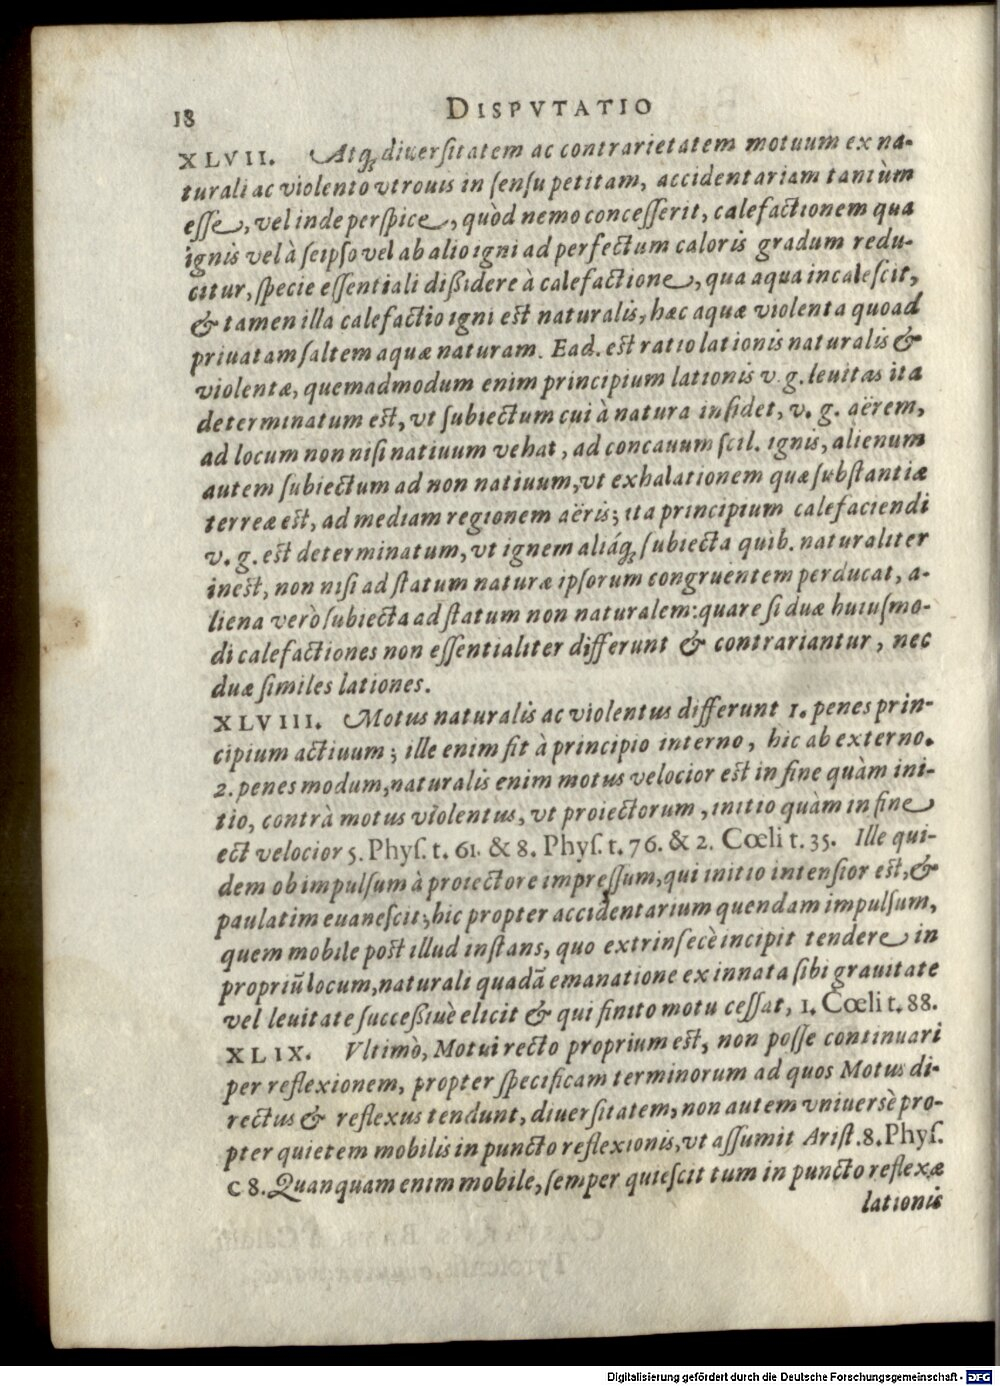 18 DISPVTATIO
XLVII. Atq; diuersitatem ac contrarietatem motuum ex na-
turali ac violento vtrouis in sensu petitam, accidentariam tantùm
esse, vel inde perspice, quòd nemo concesserit, calefactionem qua
ignis vel à seipso vel ab alio igni ad perfectum caloris gradum redu-
citur, specie essentiali dißidere à calefactione, qua aqua incalescit,
& tamen illa calefactio igni est naturalis, hæc aquæ violenta quoad
priuatam saltem aquæ naturam. Ead. est ratio lationis naturalis &
violentæ, quemadmodum enim principium lationis v. g. leuitas ita
determinatum est, vt subiectum cui à natura insidet, v. g. aërem,
ad locum non nisi natiuum vehat, ad concauum scil. ignis, alienum
autem subiectum ad non natiuum, vt exhalationem quæ substantiæ
terreæ est, ad mediam regionem aëris; ita principium calefaciendi
v. g. est determinatum, vt ignem aliáq; subiecta quib. naturaliter
inest, non nisi ad statum naturæ ipsorum congruentem perducat, a-
liena verò subiecta ad statum non naturalem: quare si duæ huiusmo-
di calefactiones non essentialiter differunt & contrariantur, nec
duæ similes lationes.
XLVIII. Motus naturalis ac violentus differunt 1. penes prin-
cipium actiuum; ille enim fit à principio interno, hic ab externo.
2. penes modum, naturalis enim motus velocior est in fine quàm ini-
tio, contrà motus violentus, vt proiectorum, initio quàm in fine
ect velocior 5. Phys. t. 61. & 8. Phys. t. 76. & 2. Cœli t. 35. Ille qui-
dem ob impulsum à proiectore impressum, qui initio intensior est, &
paulatim euanescit; hic propter accidentarium quendam impulsum,
quem mobile post illud instans, quo extrinsecè incipit tendere in
propriũ locum, naturali quadã emanatione ex innata sibi grauitate
vel leuitate succeßiuè elicit & qui finito motu cessat, 1. Cœli t. 88.
XLIX. Vltimò, Motui recto proprium est, non posse continuari
per reflexionem, propter specificam terminorum ad quos Motus di-
rectus & reflexus tendunt, diuersitatem, non autem vniuersè pro-
pter quietem mobilis in puncto reflexionis, vt assumit Arist. 8. Phys.
c 8. Quanquam enim mobile, semper quiescit tum in puncto reflexæ
lationis
Digitalisierung gefördert durch die Deutsche Forschungsgemeinschaft - DFG